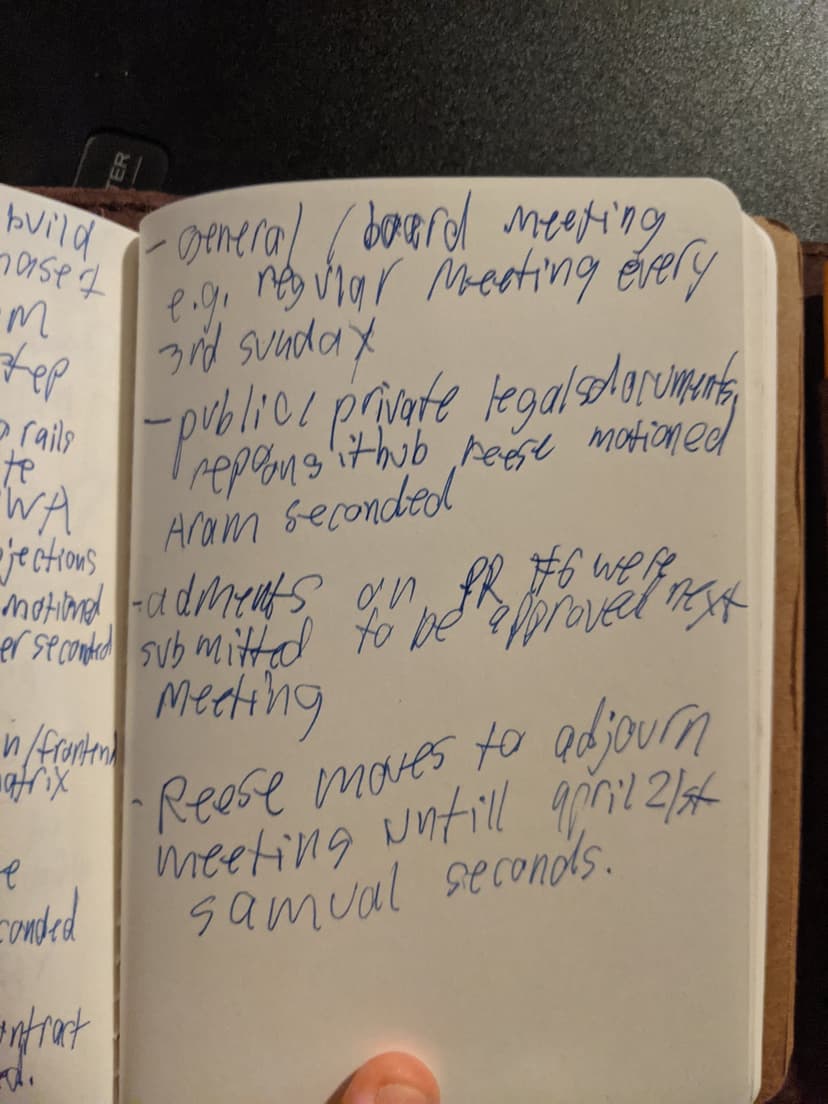 TER
build
M
step
rails
te
WA
jections
motioned
er seconded
n/frontend
atrix
e
conded
ontract
ed.
- General / board meeting
e.g. regular meeting every
3rd sunday
- public/private legal documents,
github reese motioned
Aram seconded
- adments on PR #6 were
submitted to be approved next
meeting
- Reese moves to adjourn
meeting untill april 21st
samual seconds.